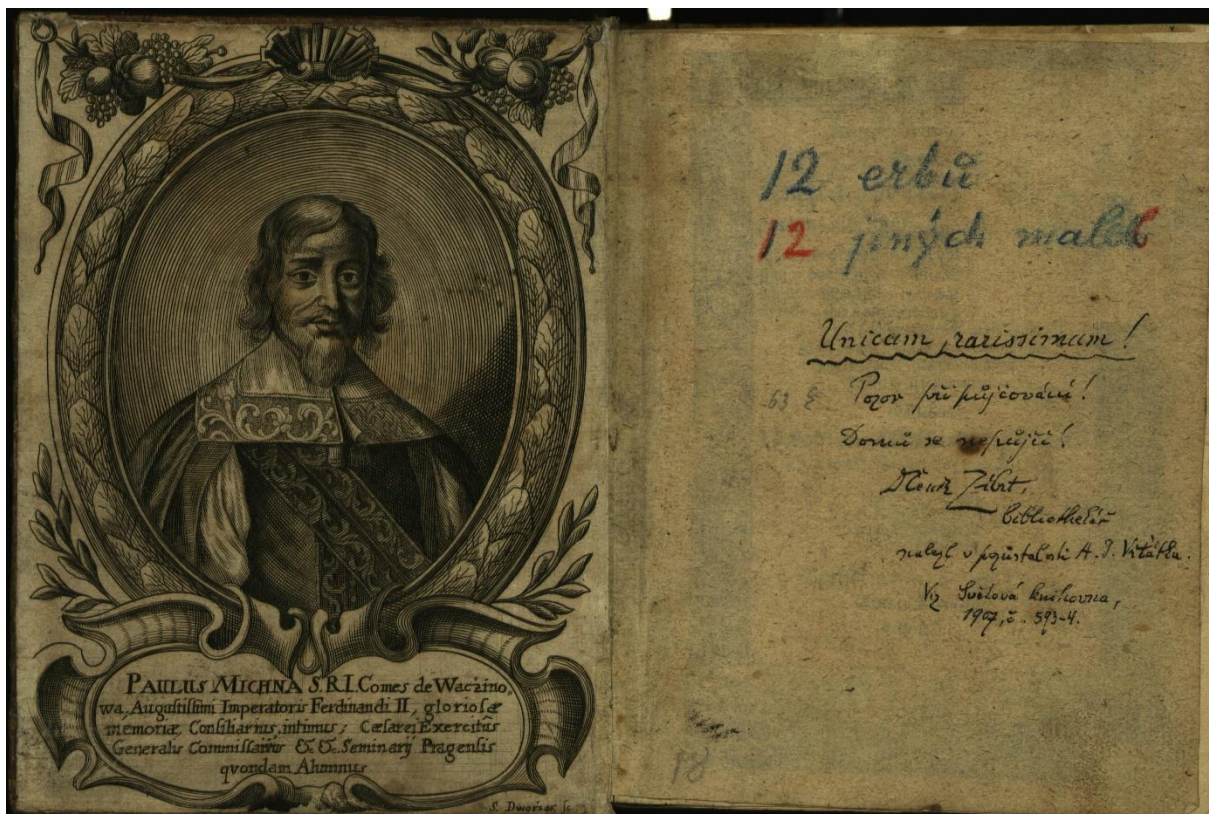 PAULUS MICHNA S.R.I. Comes de Waczino,
wa, Augustissimi Imperatoris Ferdinandi II, gloriosæ
memoriæ Consiliarius, intimus; Cæsarei Exercitûs
Generalis Commissarius &c &c. Seminarij Pragensis
qvondam Alumnus
S. Dworzak sc:
12 erbů
12 jiných maleb
Unicum, rarissimum!
63 E
Pozor při půjčování!
Domů se nepůjčí!
Čeněk Zíbrt,
bibliothekář
nalezl v pozůstalosti A. J. Vrťátka.
Viz Světová knihovna,
1907, č. 593-4.